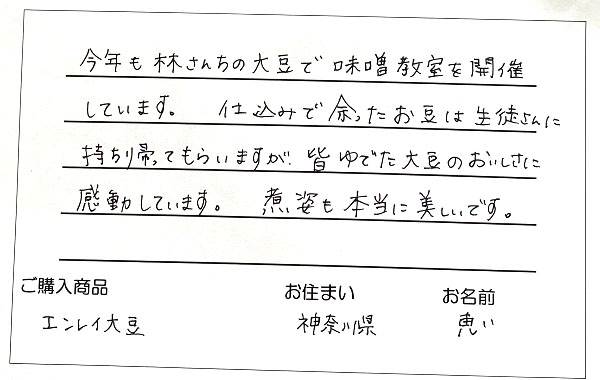 今年も林さんちの大豆で味噌教室を開催
しています。 仕込みで余ったお豆は生徒さんに
持ち帰ってもらいますが、皆ゆでた大豆のおいしさに
感動しています。 煮姿も本当に美しいです。
ご購入商品 お住まい お名前
エンレイ大豆 神奈川県 恵い